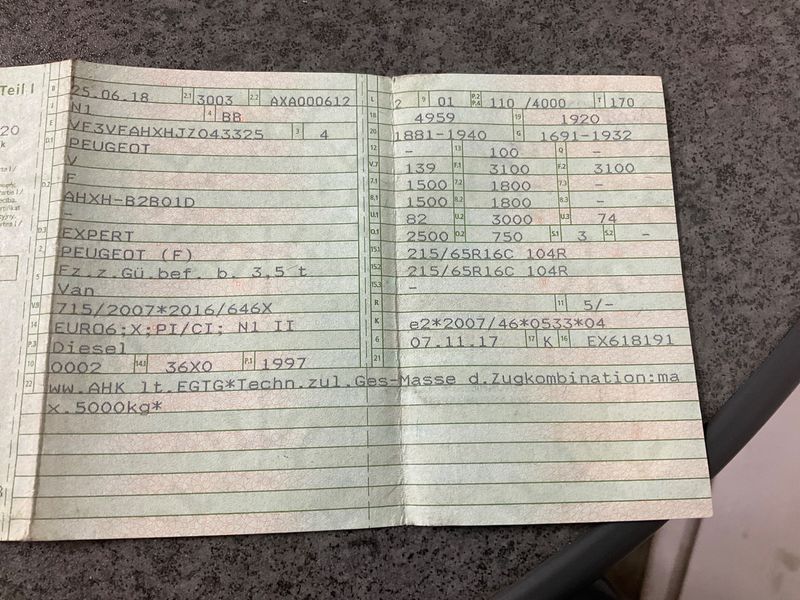 Teil I
B 25.06.18 2.1 3003 2.2 AXA000612
J N1 4 BB
E VF3VFAHXHJZ043325 3 4
D.1 PEUGEOT
V
D.2 F
AHXH-B2B01D
-
D.3 EXPERT
2 PEUGEOT (F)
5 Fz.z.Gü.bef. b. 3,5 t
Van
V.9 715/2007*2016/646X
14 EURO6;X;PI/CI; N1 II
P.3 Diesel
10 0002 14.1 36X0 P.1 1997
22 ww.AHK lt.EGTG*Techn.zul.Ges-Masse d.Zugkombination:ma
x.5000kg*
L 2 9 01 P.2 P.4 110 /4000 T 170
18 4959 19 1920
20 1881-1940 G 1691-1932
12 - 13 100 Q -
V.7 139 F.1 3100 F.2 3100
7.1 1500 7.2 1800 7.3 -
8.1 1500 8.2 1800 8.3 -
U.1 82 U.2 3000 U.3 74
O.1 2500 O.2 750 S.1 3 S.2 -
15.1 215/65R16C 104R
15.2 215/65R16C 104R
15.3 -
R 11 5/-
K e2*2007/46*0533*04
6 07.11.17 17 K 16 EX618191
21